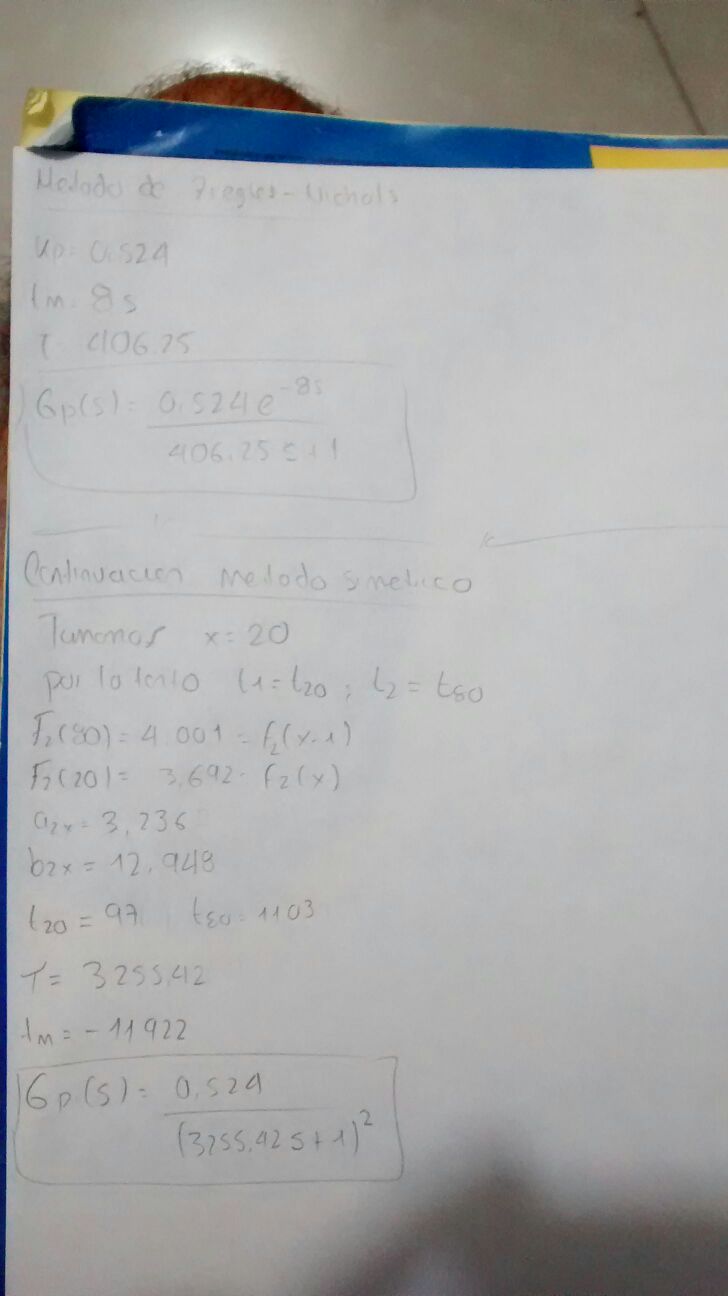 Metodo de Ziegler-Nichols
Kp= 0.524
tm= 8s
T= 406.25
Gp(s)= 0.524 e^-8s
406.25 s+1
Continuacion metodo simetrico
Tomamos x=20
por lo tanto t1=t20 ; t2 = t80
F2(80)= 4.001 = f2(x-1)
F2(20)= 3,692= f2(x)
a2x= 3,236
b2x= 12,948
t20= 97 t80= 1103
T= 3255,42
tm= -11922
Gp(s)= 0,524
(3255,42s+1)^2